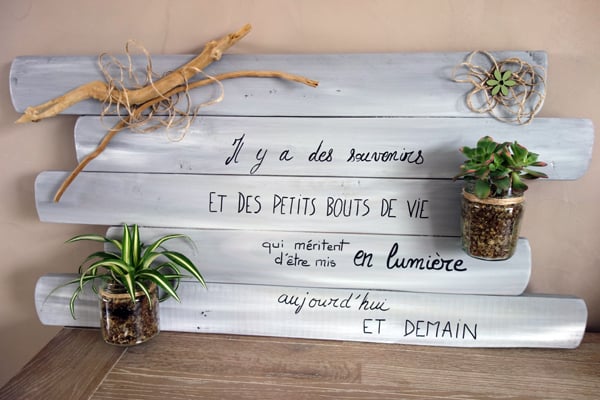 Il y a des souvenirs
ET DES PETITS BOUTS DE VIE
qui méritent
d'être mis en lumière
aujourd'hui
ET DEMAIN